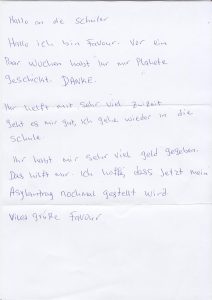 Hallo an die schüler
Hallo ich bin Favour. Vor ein
Paar Wuchen habt ihr mir Plakete
geschickt. DANKE.
Ihr helft mir sehr viel zurzeit
geht es mir gut, Ich gehe wieder in die
schule.
Ihr habt mir sehr viel geld gegeben.
Das hilft mir. Ich hoffe, dass Jetzt mein
Asylantrag nochmal gestellt wird
Viele grüße Favour